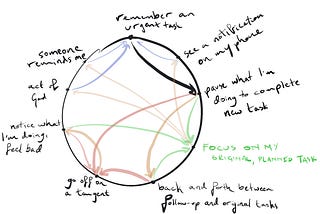 remember an
urgent task
see a notification
on my phone
pause what I'm
doing to complete
new task
FOCUS ON MY
ORIGINAL, PLANNED TASK
back and forth between
follow-up and original tasks
go off on
a tangent
notice what
I'm doing,
feel bad
act of
God
someone
reminds me